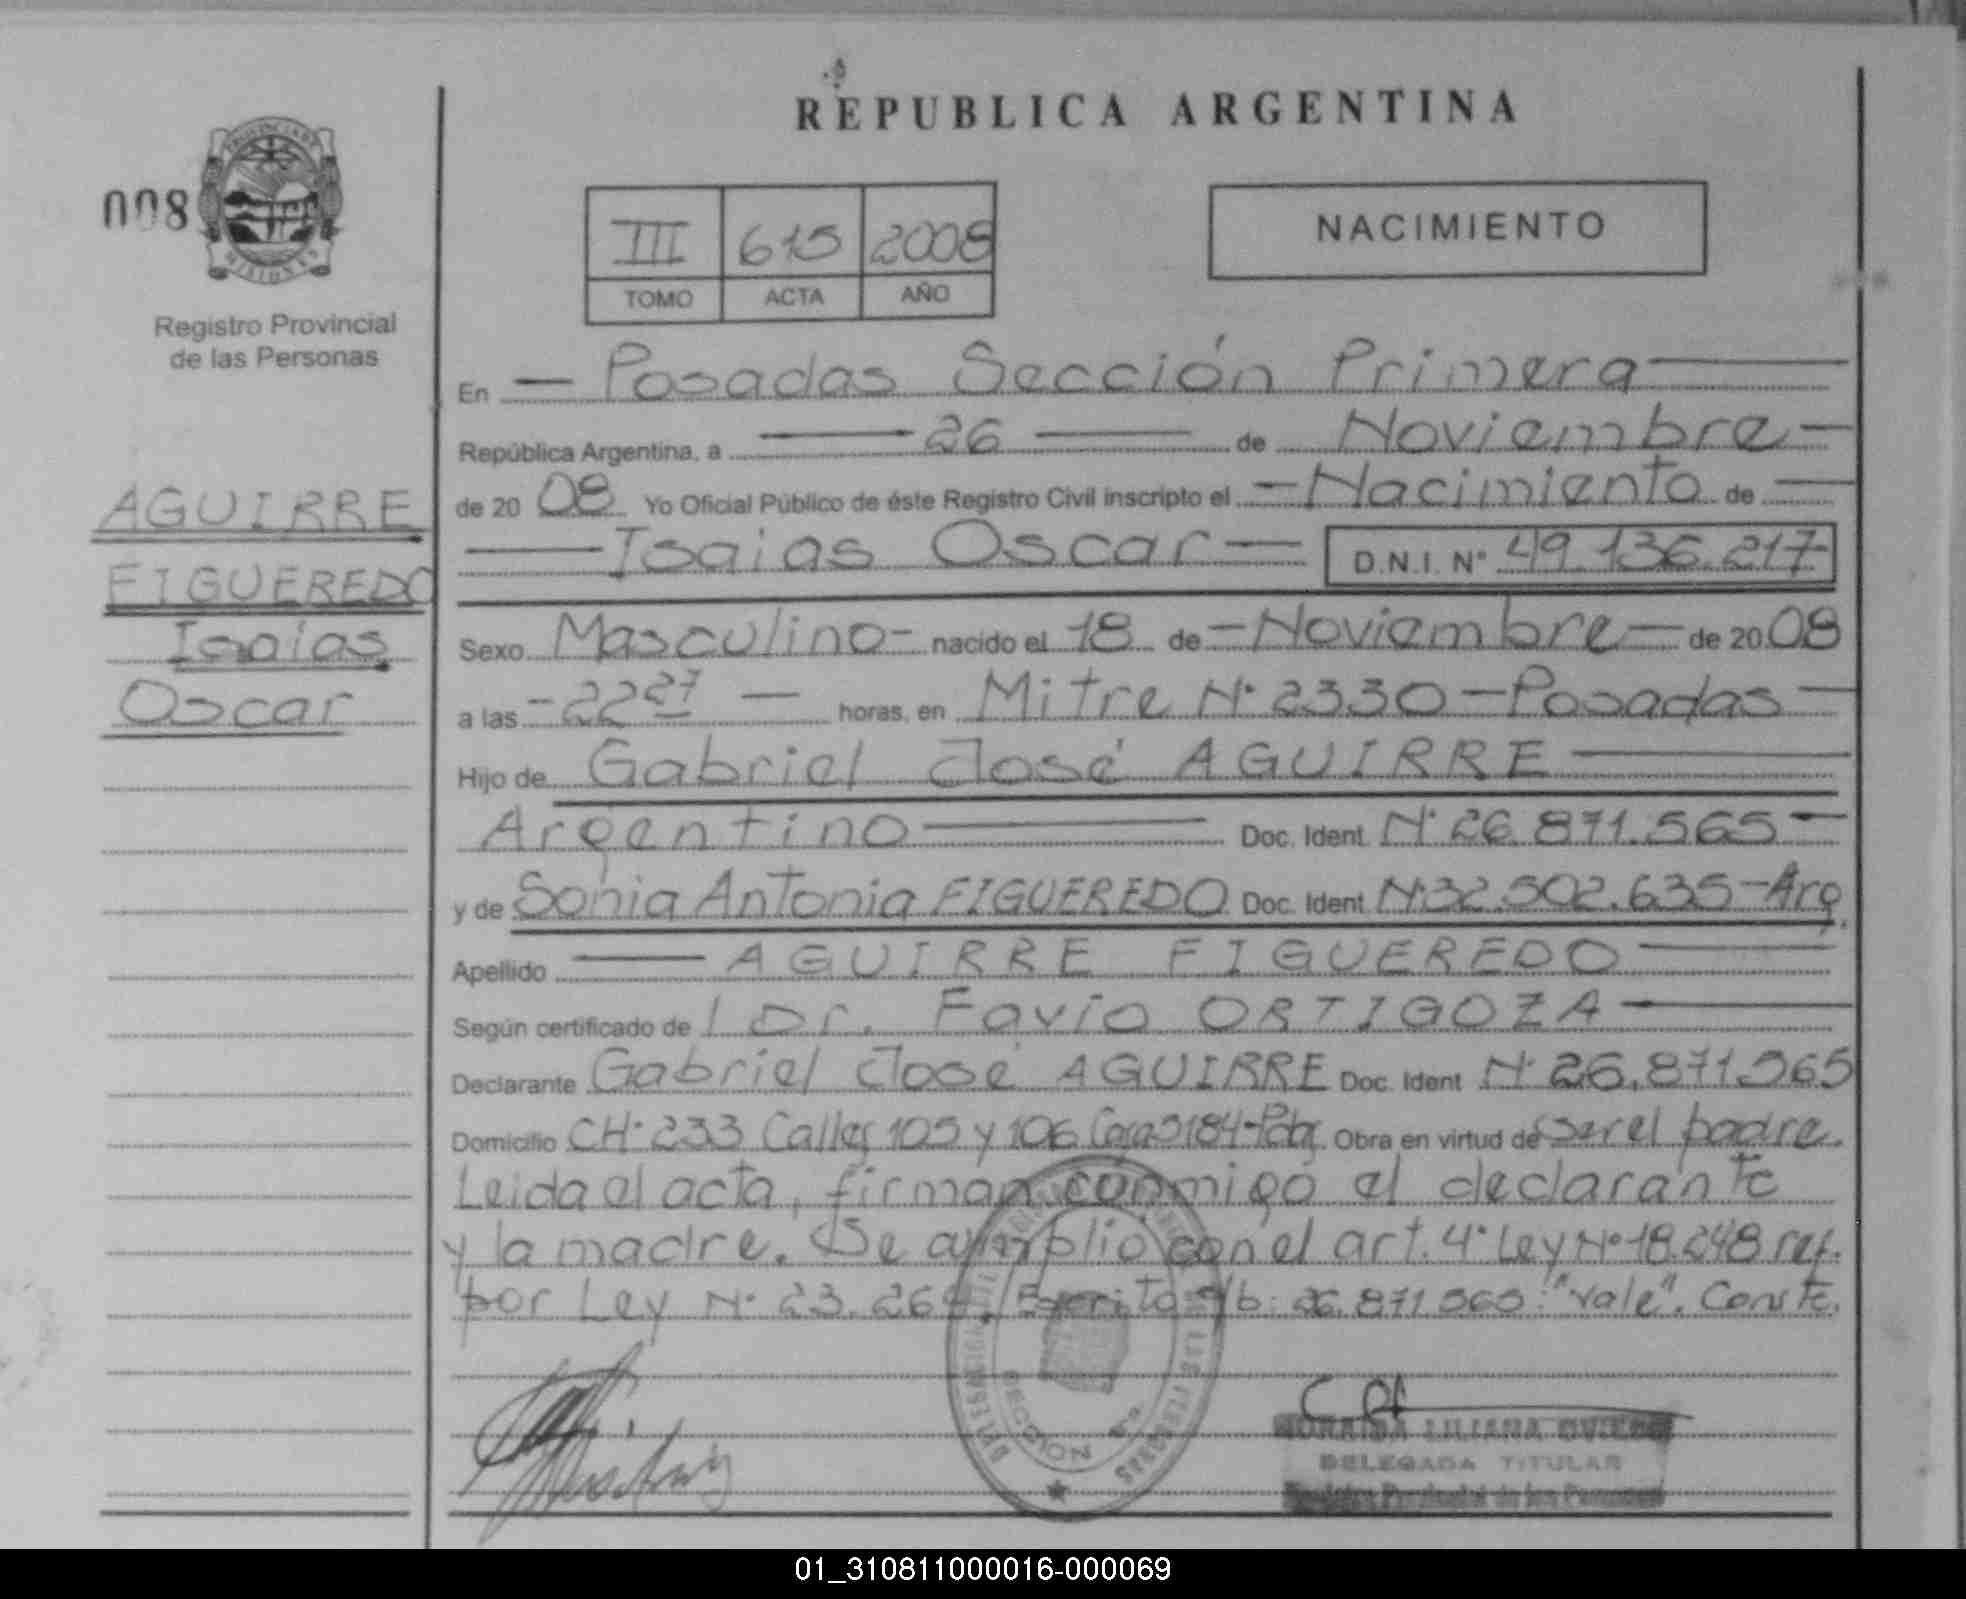 REPUBLICA ARGENTINA
008
PROVINCIA DE
MISIONES
Registro Provincial
de las Personas
III 615 2008
TOMO ACTA AÑO
NACIMIENTO
AGUIRRE
FIGUEREDO
Isaias
Oscar
En — Posadas Sección Primera —
República Argentina, a — 26 — de Noviembre —
de 2008 Yo Oficial Público de éste Registro Civil inscripto el — Nacimiento de —
— Isaias Oscar — D.N.I. N° 49.136.217
Sexo Masculino - nacido el 18 de — Noviembre — de 2008
a las - 22 27 — horas, en Mitre N° 2330 — Posadas —
Hijo de Gabriel José AGUIRRE —
Argentino — Doc. Ident N° 26.871.565 —
y de Sonia Antonia FIGUEREDO Doc. Ident N° 32.502.635 - Arg.
Apellido — AGUIRRE FIGUEREDO —
Según certificado de l Dr. Favio ORTIGOZA —
Declarante Gabriel José AGUIRRE Doc. Ident N° 26.871.565
Domicilio CH. 233 Calles 105 y 106 Obra en virtud de ser el padre.
Leida el acta, firman conmigo el declarante
y la madre. Se amplió con el art. 4° Ley N° 18.248 ref.
por Ley N° 23.264. Escrito s/b: 26.871.565: "Vale". Conste.
SECCION
LILIANA
DELEGADA TITULAR
Registro Provincial de las Personas
01_310811000016-000069